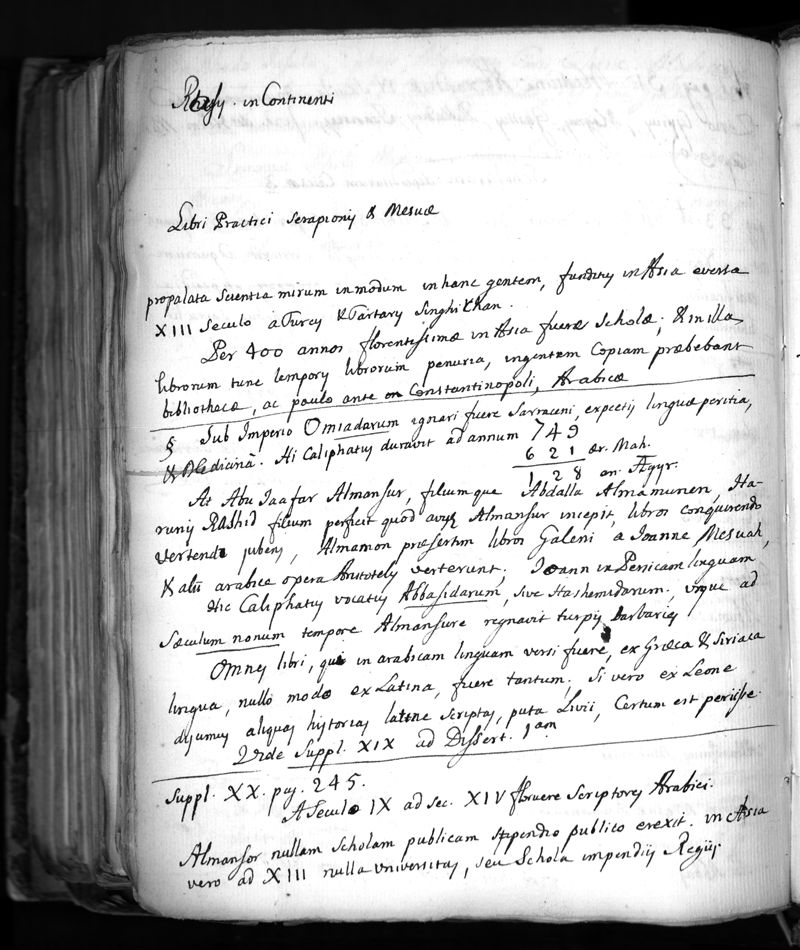 Rhasy. in Continenti
Libri Practici Serapionis & Mesuæ
propalata scientia mirum inmodum inhanc gentem, funditus in Asia eversa
XIII seculo a Turcis & Tartarys Singhi Khan.
Per 400 annos florentissimæ in Asia fueræ scholæ; & in illa
librorum tunc temporis librorum penuria, ingentem copiam præbebant
bibliothecæ, ac paulo ante Constantinopoli, Arabicæ
§ Sub Imperio Omiadarum ignari fuere Sarraceni, exceptis linguæ peritia,
& Medicinâ. Hi Caliphatus duravit ad annum 749
621 ær. Mah.
128 an. Ægyr.
At Abu Iaafar Almansur, filiumque Abdalla Almamunen, Ha-
runis Rashid filium perficit quod avus Almansur incepit, libros conquirendo
vertendo jubens, Almamon præsertim libros Galeni a Joanne Mesuah,
& aliis arabice opera Aristotelis verterunt; Joann in Persicam linguam
Hic Caliphatus vocatus Abbasidarum, sive Hashemidarum, usque ad
Sæculum nonum tempore Almansure regnavit turpis barbaries
Omnes libri, qui in arabicam linguam versi fuere, ex Græca & Siriaca
lingua, nullo modo ex Latina, fuere tantum; Si vero ex Leone
discimus aliquas historias latine scriptas, puta Livii, Certum est periisse.
Vide Suppl. XIX ad Dissert. 1am
Suppl. XX. pag. 245.
A Seculo IX ad sec. XIV floruere Scriptores Arabici.
Almansor nullam scholam publicam stipendio publico erexit. in Asia
vero ad XIII nulla universitas, seu Schola impendiis Regiis.